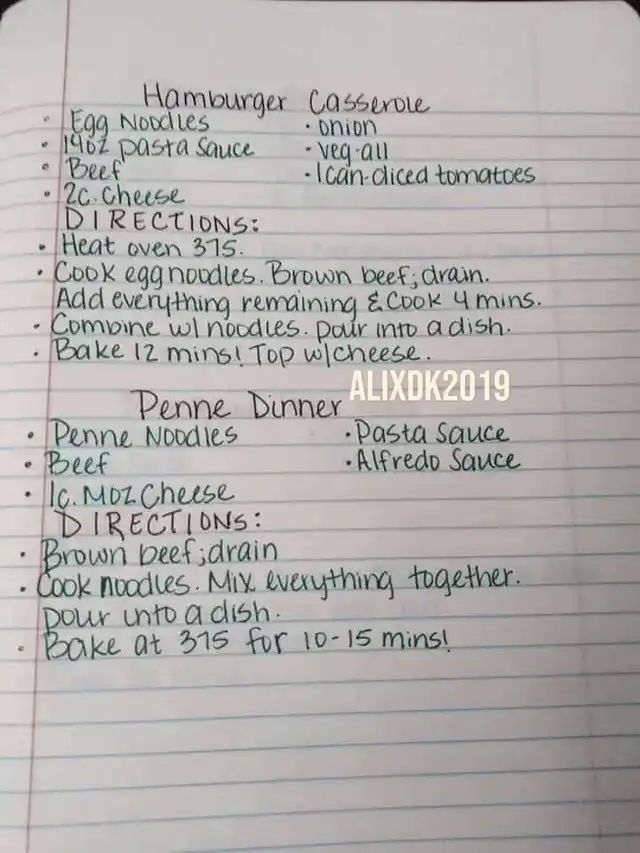 Hamburger Casserole
• Egg Noodles • onion
• 14oz pasta sauce • veg-all
• Beef • 1 can-diced tomatoes
• 2c. Cheese
DIRECTIONS:
• Heat oven 375.
• Cook egg noodles. Brown beef; drain.
Add everything remaining & Cook 4 mins.
• Combine w/ noodles. pour into a dish.
• Bake 12 mins! Top w/cheese.
ALIXDK2019
Penne Dinner
• Penne Noodles • Pasta Sauce
• Beef • Alfredo Sauce
• 1c. Moz Cheese
DIRECTIONS:
• Brown beef; drain
• Cook noodles. Mix everything together.
pour into a dish.
• Bake at 375 for 10-15 mins!